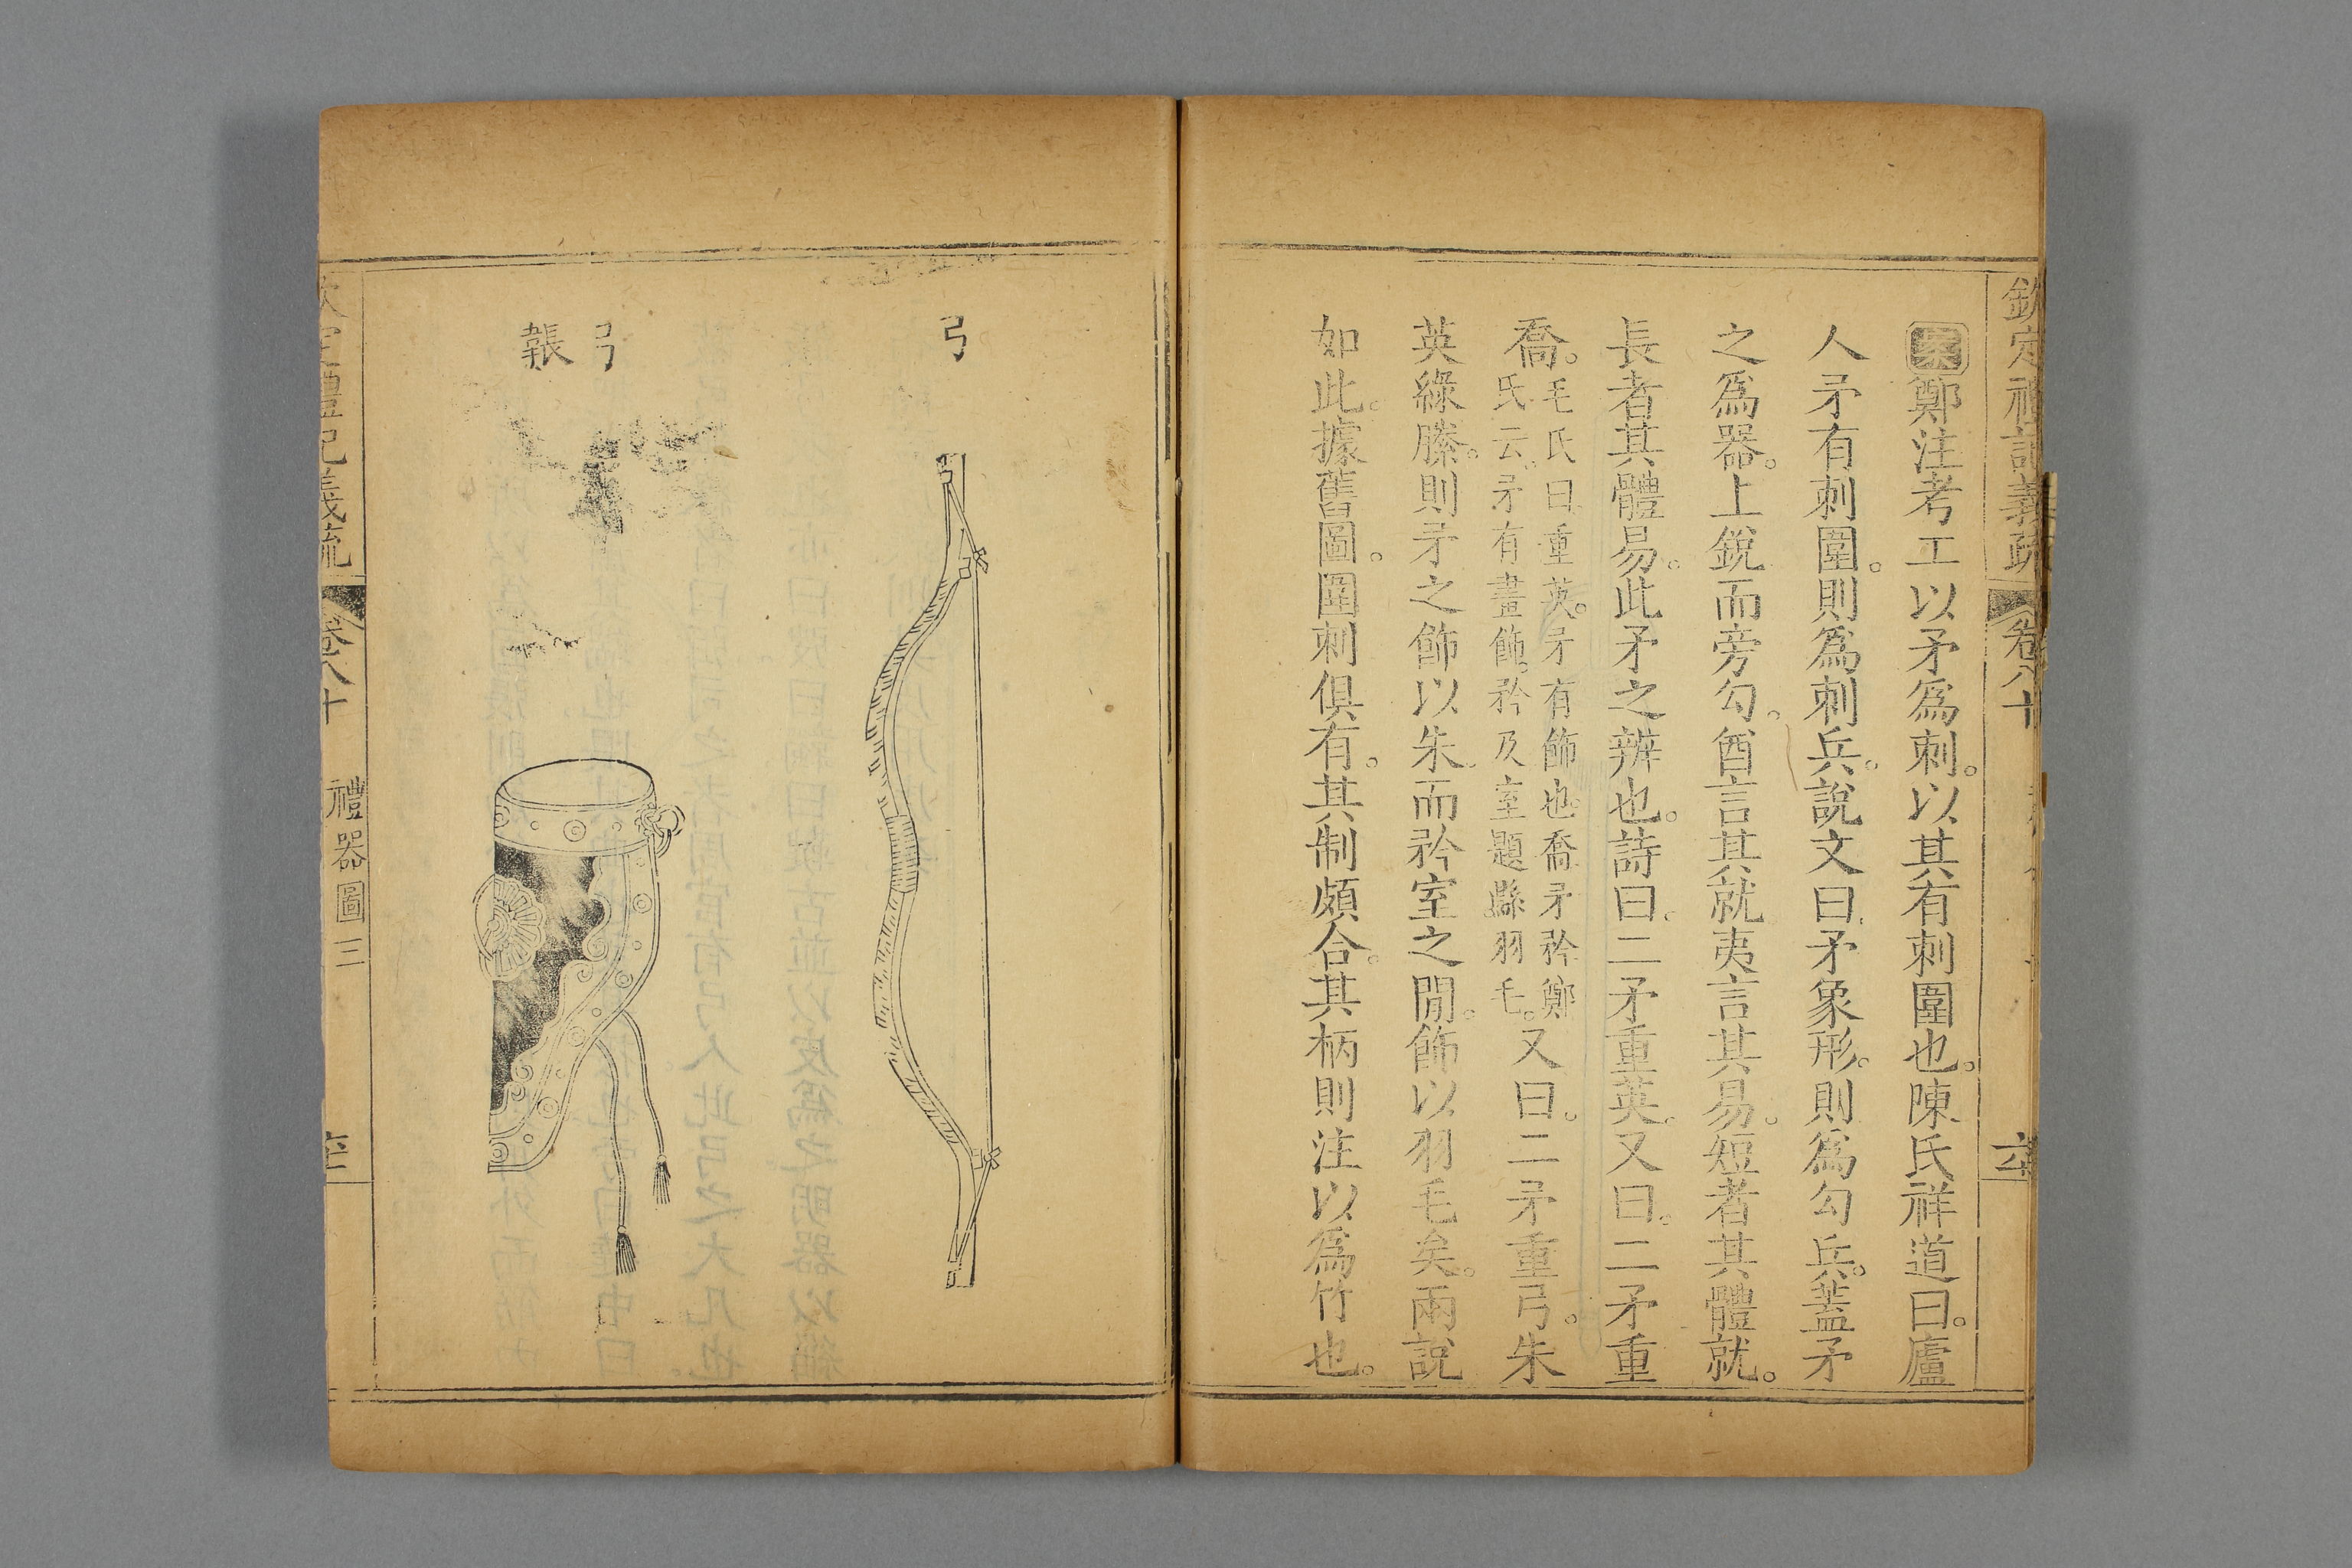 欽定禮記義疏 卷八十
案鄭注考工以矛為刺以其有刺圍也陳氏祥道曰廬
人矛有刺圍則為刺兵說文曰矛象形則為勾兵蓋矛
之為器上銳而旁勾酋言其就夷言其易短者其體就
長者其體易此矛之辨也詩曰二矛重英又曰二矛重
喬毛氏曰重英矛有飾也喬矛矜鄭
氏云矛有畫飾矜及室題縣羽毛又曰二矛重弓朱
英綠縢則矛之飾以朱而矜室之間飾以羽毛矣兩說
如此據舊圖圍刺俱有其制頗合其柄則注以為竹也
弓
弓
韔
欽定禮記義疏 卷八十 禮器圖三